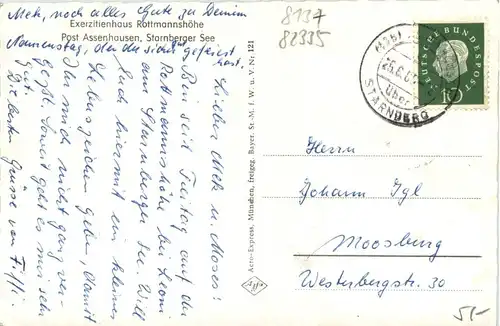 Mek, noch alles Gute zu Deinem
Exerzitienhaus Rottmannshöhe
Post Assenhausen, Starnberger See
Namenstag, den du sicher gefeiert
hast.
Lieber Mek u. Moses!
Bin seit Freitag auf der
Rottmannshöhe bei Leoni
am Starnberger See. Will
Euch hiermit ein kleines
Lebenszeichen geben, damit
Ihr mich nicht ganz ver-
geßt. Soweit geht es mir sehr
gut.
Die besten Grüße von Fiffi.
Aero-Express, München, freigeg. Bayer. St.-M. f. W. u. V. Nr. 121
Agfa
8137
82335
STARNBERG
DEUTSCHE BUNDESPOST
10
Herrn
Johann Igl
Moosburg
Westerbergstr. 30
5,-